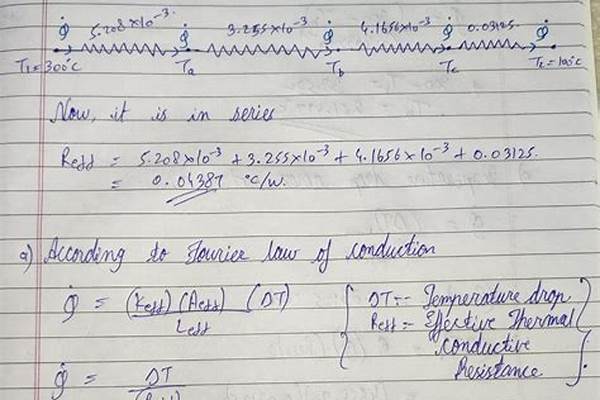 Q̇ 5.208×10⁻³ Q̇ 3.255×10⁻³ Q̇ 4.1656×10⁻³ Q̇ 0.03125 Q̇
T₁=300°C Ta Tb Tc T₂=100°C
Now, it is in series
Reff = 5.208×10⁻³ + 3.255×10⁻³ + 4.1656×10⁻³ + 0.03125.
= 0.04387 °C/W.
a) According to Fourier law of conduction
Q̇ = (Keff)(Aeff) (DT)
Leff
DT -- Temperature drop
Reff = Effective Thermal
Conductive
Resistance
Q̇ = DT
(Reff)